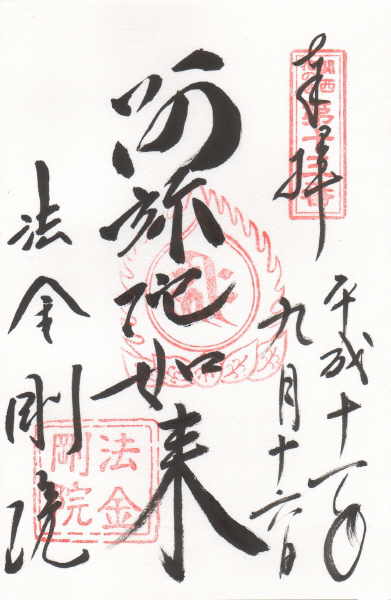 奉拝
関西
花の寺
第十三番
平成十一年
九月十六日
阿弥陀如来
法金剛院
法金
剛院